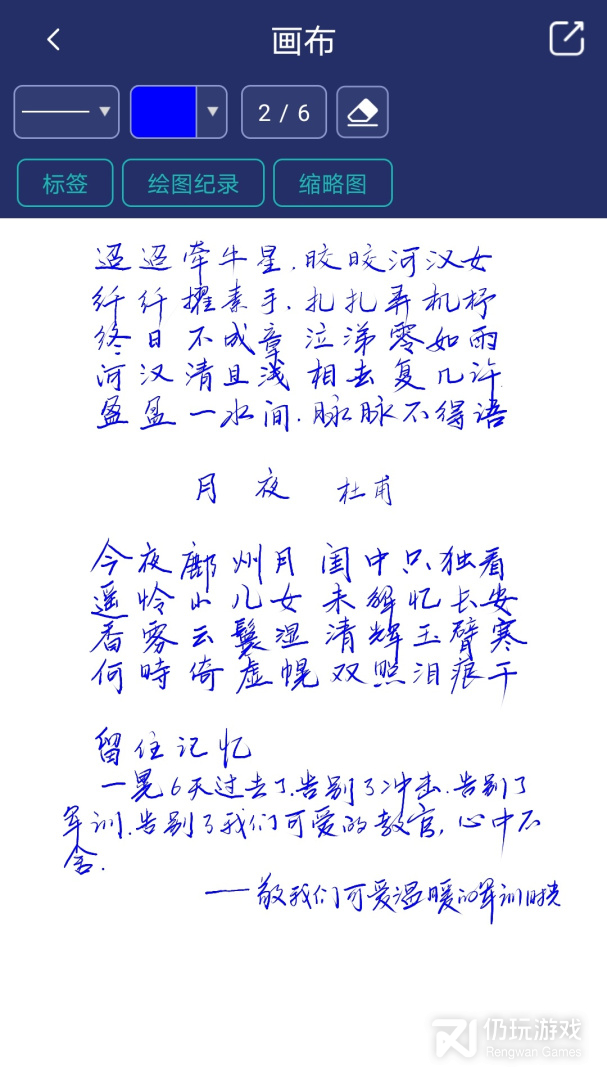 画布
2 / 6
标签 绘图纪录 缩略图
迢迢牵牛星.皎皎河汉女
纤纤擢素手.扎扎弄机杼
终日不成章 泣涕零如雨
河汉清且浅 相去复几许
盈盈一水间.脉脉不得语
月夜 杜甫
今夜鄜州月 闺中只独看
遥怜小儿女 未解忆长安
香雾云鬓湿 清辉玉臂寒
何時倚虚幌 双照泪痕干
留住记忆
一晃6天过去了.告别了冲击.告别了
军训.告别了我们可爱的教官,心中不
舍.
——敬我们可爱温暖的军训时光
仍玩游戏
Rengwan Games